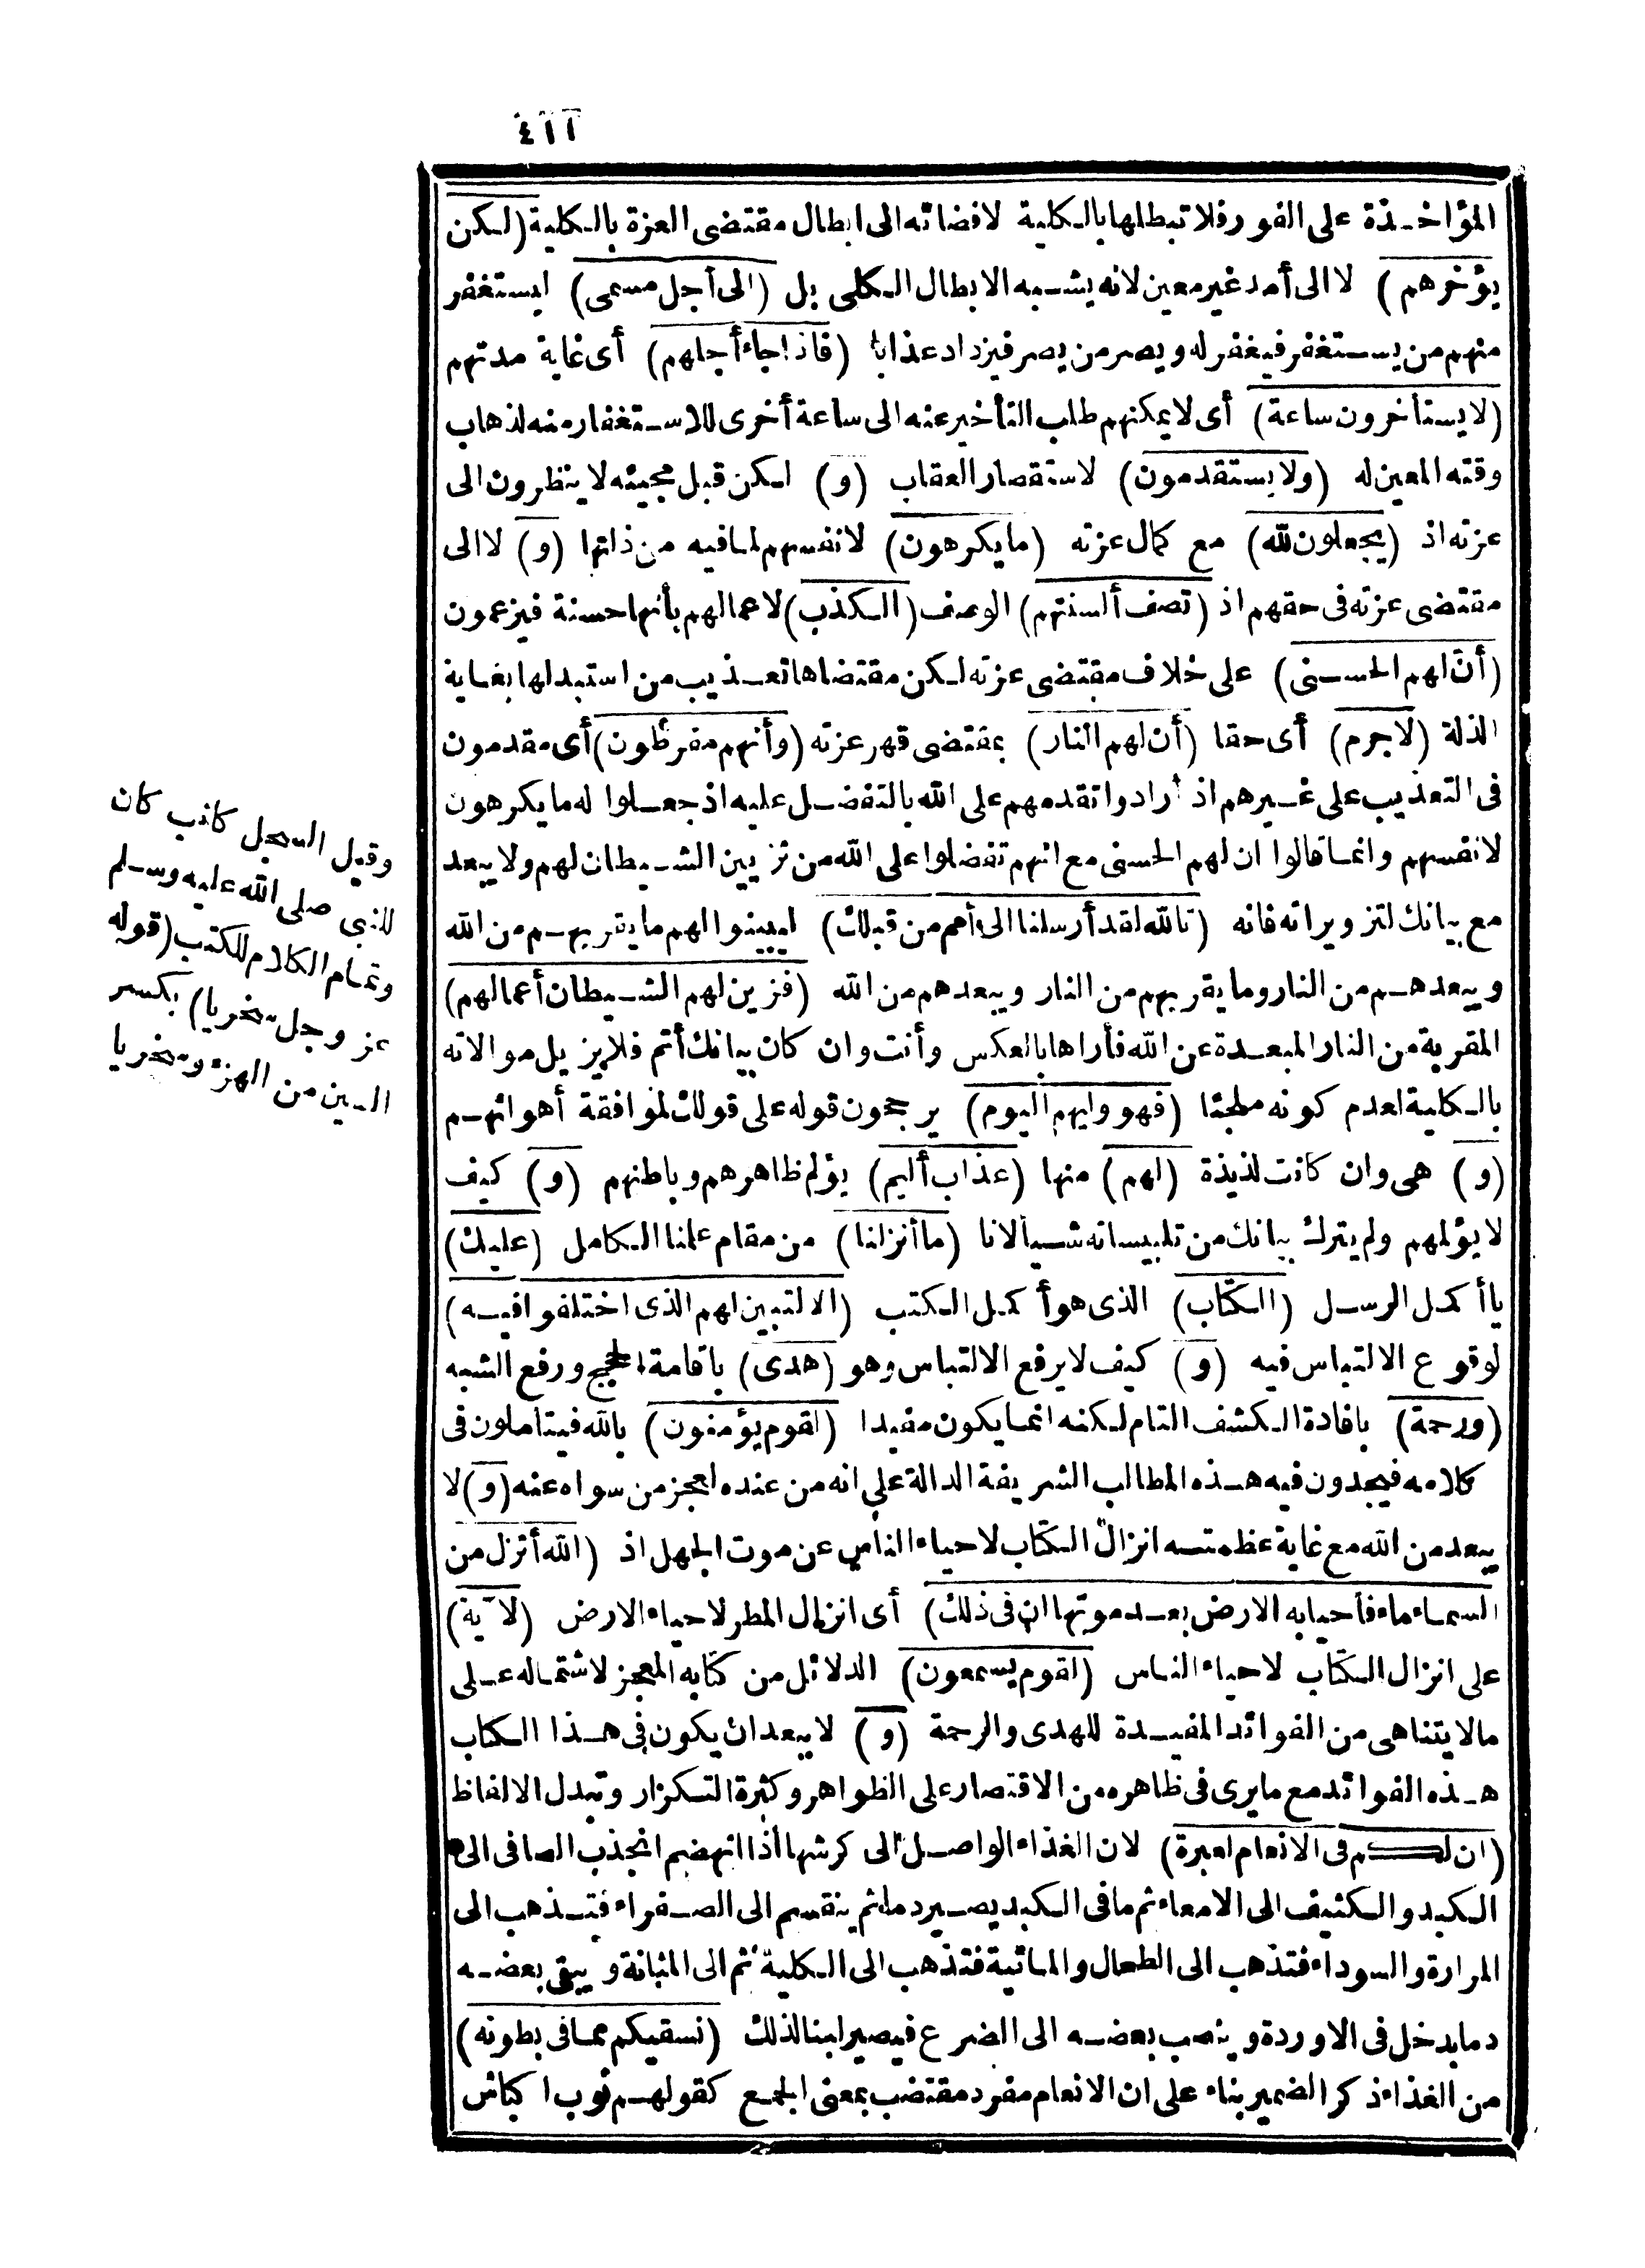 ٤١١
المؤاخذة على الفور فلا تبطلها بالكلية لافضائه الى ابطال مقتضى العزة بالكلية (لكن
يؤخرهم) لا الى أمد غير معين لانه يشبه الابطال الكلى بل (الى أجل مسمى) ليستغفر
منهم من يستغفر فيغفر له ويصر من يصر فيزداد عذابا (فاذا جاء أجلهم) أى غاية مدتهم
(لا يستأخرون ساعة) أى لا يمكنهم طلب التأخير عنه الى ساعة أخرى للاستغفار منه لذهاب
وقته المعين له (ولا يستقدمون) لاستقصار العقاب (و) لكن قبل مجيئه لا ينظرون الى
عزته اذ (يجعلون لله) مع كمال عزته (ما يكرهون) لانفسهم لما فيه من ذاتها (و) لا الى
مقتضى عزته فى حقهم اذ (تصف ألسنتهم) الوصف (الكذب) لاعمالهم بأنها حسنة فيزعمون
(أنّ لهم الحسنى) على خلاف مقتضى عزته لكن مقتضاها تعذيب من استبدلها بغاية
الذلة (لا جرم) أى حقا (أن لهم النار) بمقتضى قهر عزته (وأنهم مفرطون) أى مقدمون
فى التعذيب على غيرهم اذ أرادوا تقدمهم على الله بالتفضل عليه اذ جعلوا له ما يكرهون
لانفسهم وانما قالوا ان لهم الحسنى مع انهم تفضلوا على الله من تزيين الشيطان لهم ولا يبعد
مع بيانك لتزويراته فانه (تالله لقد أرسلنا الى أمم من قبلك) ليبينوا لهم ما يقربهم من الله
ويبعدهم من النار وما يقربهم من النار ويبعدهم من الله (فزين لهم الشيطان أعمالهم)
المقربة من النار المبعدة عن الله فأراها بالعكس وأنت وان كان بيانك أتم فلا يزيل موالاته
بالكلية لعدم كونه ملجئا (فهو وليهم اليوم) يرجحون قوله على قولك لموافقة أهوائهم
(و) هى وان كانت لذيذة (لهم) منها (عذاب أليم) يؤلم ظاهرهم وباطنهم (و) كيف
لا يؤلمهم ولم يترك بيانك من تلبيساته شيأ لانا (ما أنزلنا) من مقام علمنا الكامل (عليك)
يا أكمل الرسل (الكتاب) الذى هو أكمل الكتب (الا لتبين لهم الذى اختلفوا فيه)
لوقوع الالتباس فيه (و) كيف لا يرفع الالتباس وهو (هدى) باقامة الحجج ورفع الشبه
(ورحمة) بافادة الكشف التام لكنه انما يكون مفيدا (لقوم يؤمنون) بالله فيتأملون فى
كلامه فيجدون فيه هذه المطالب الشريفة الدالة على انه من عنده لعجز من سواه عنه (و) لا
يبعد من الله مع غاية عظمته انزال الكتاب لاحياء الناس عن موت الجهل اذ (الله أنزل من
السماء ماء فأحيا به الارض بعد موتها ان فى ذلك) أى انزال المطر لاحياء الارض (لآية)
على انزال الكتاب لاحياء الناس (لقوم يسمعون) الدلائل من كتابه المعجز لاشتماله على
ما لا يتناهى من الفوائد المفيدة للهدى والرحمة (و) لا يبعد ان يكون فى هذا الكتاب
هذه الفوائد مع ما يرى فى ظاهره من الاقتصار على الظواهر وكثرة التكرار وتبدل الالفاظ
(ان لكم فى الانعام لعبرة) لان الغذاء الواصل الى كرشها اذا انهضم انجذب الصافى الى
الكبد والكثيف الى الامعاء ثم ما فى الكبد يصير دما ثم ينقسم الى الصفراء فتذهب الى
المرارة والسوداء فتذهب الى الطحال والمائية فتذهب الى الكلية ثم الى المثانة ويبقى بعضه
دما يدخل فى الاوردة وينصب بعضه الى الضرع فيصير لبنا لذلك (نسقيكم مما فى بطونه)
من الغذاء ذكر الضمير بناء على ان الانعام مفرد مقتضب بمعنى الجمع كقولهم ثوب اكباش
وقيل السجل كاتب كان
للنبى صلى الله عليه وسلم
وتمام الكلام للكتب (قوله
عز وجل سخريا) بكسر
السين من الهزء وسخريا